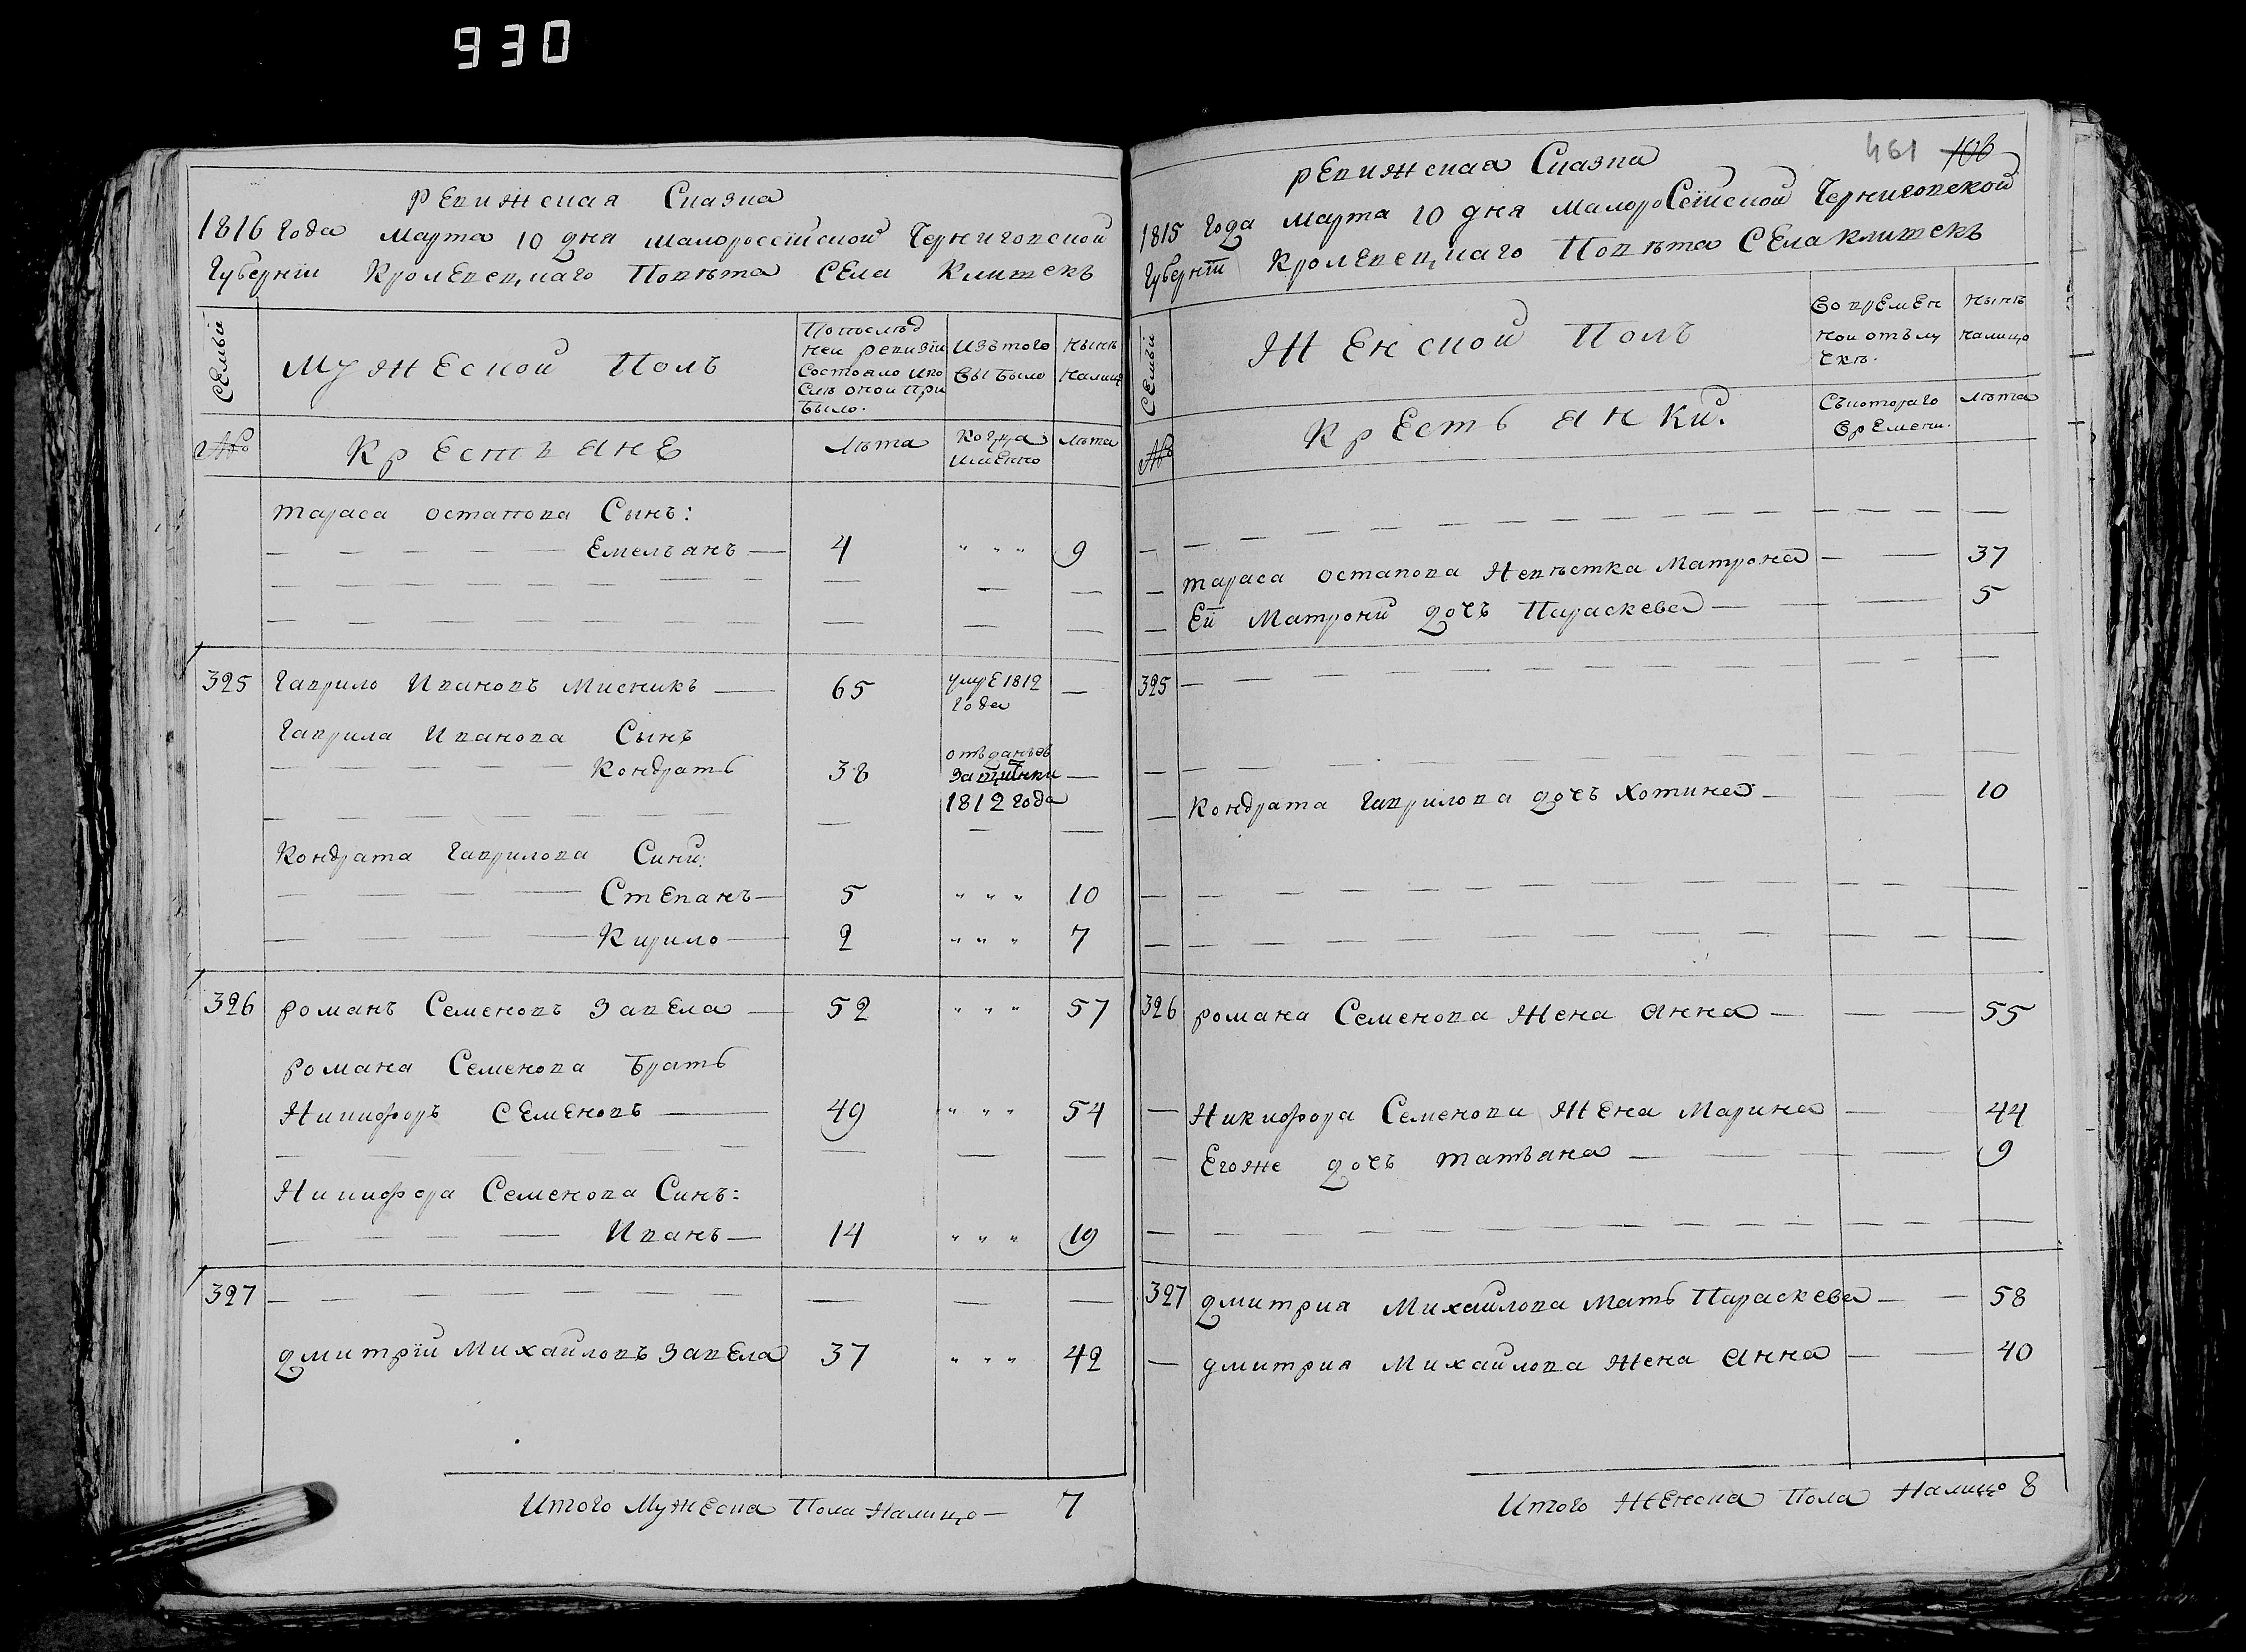 930
Ревижская Сказка
1816 года Марта 10 дня Малоросейской Черниговской
Губернїи Кролевецкаго Повѣта Села Клишекъ
Семьи
Мужеской Полъ
Попослѣд
ней ревизїи
Состояло ипо
Слѣ оной при
было.
Изътого
Выбыло
Нынѣ
Налицо
№
Крестьяне
Лѣта
Когда
Именно
Лѣта
Тараса Остапова Сынъ:
Емельянъ 4 " " " 9
325 Гаврило Ивановъ Мисникъ 65 умре 1812
года
Гаврила Иванова Сынъ
Кондратъ 38 отъданъвъ
1812 года
Кондрата Гаврилова Сини:
Степанъ 5 " " " 10
Кирило 2 " " " 7
326 Романъ Семеновъ Завела 52 " " " 57
Романа Семенова Братъ
Никифоръ Семеновъ 49 " " " 54
Никифора Семенова Синъ:
Иванъ 14 " " " 19
327
Дмитрїй Михайловъ Завела 37 " " " 42
Итого Мужеска Пола Налицо 7
461 108
Ревижская Сказка
1815 Года Марта 10 дня Малоросейской Черниговской
Губернїи Кролевецкаго Повѣта Села Клишекъ
Семьи
Женской Полъ
Вовремен
ной отълу
чкѣ.
Нынѣ
Налицо
№
Крестьянки.
Съкотораго
Времени.
Лѣта
Тараса Остапова Невѣстка Матрона 37
Ей Матрони дочъ Параскева 5
325
Кондрата Гаврилова дочъ Хотина 10
326 Романа Семенова Жена Анна 55
Никифора Семенова Жена Марина 44
Егоже дочъ Татьяна 9
327 Дмитрия Михайлова Мать Параскева 58
Дмитрия Михайлова Жена Анна 40
Итого Женска Пола Налицо 8